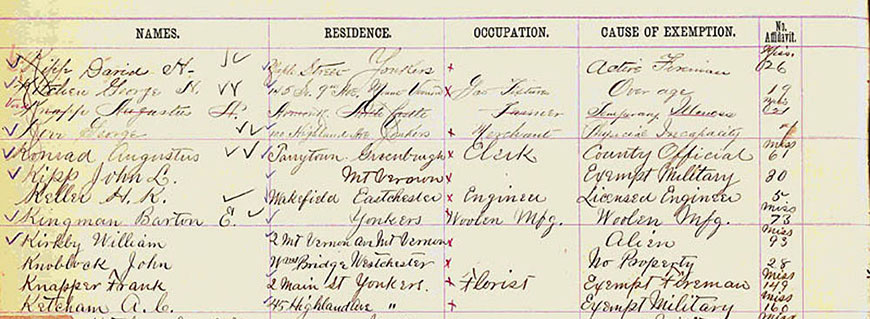 NAMES. RESIDENCE. OCCUPATION. CAUSE OF EXEMPTION. No. Affidavit.
Kipp David H. Yonkers Active Fireman Miss. 26
George H. 145 So. 9th Ave, Mount Vernon Gas Fixtures Over age 19
Knapp Augustus H. Armonk, North Castle Farmer Temporary Illness
Kerr George Highland Ave Yonkers Merchant Physical Incapacity
Konrad Augustus Tarrytown Greenburgh Clerk County Official Miss 61
Kipp John L. Mt Vernon Exempt Military 30
Keller H. K. Wakefield Eastchester Engineer Licensed Engineer 5
Kingman Barton E. Yonkers Woolen Mfg. Woolen Mfg. Miss 73
Kirkby William 2 Mt Vernon av Mt Vernon Alien Miss 93
Knoblock John Wms Bridge Westchester No Property 28
Knapper Frank 2 Main St Yonkers. Florist Exempt Fireman Miss 149
Ketcham A. C. 45 Highland Ave " Exempt Military Miss 160